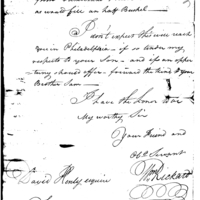 as would fill an half Bushel
I don't expect this will reach
you in Philadelphia - if so tender my
respects to your Son - and if an oppor-
tunity should offer - forward the to your
Brother Sam
I have the honor to be
My worthy Sir
Your Friend and
Obt Servant
Wm Rickard
David Henly esquire